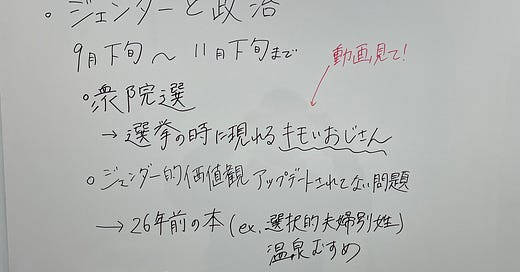 ・ジェンダーと政治
9月下旬 ~ 11月下旬まで
動画見て!
○衆院選
→ 選挙の時に現れるキモいおじさん
○ジェンダー的価値観 アップデートされてない問題
→ 26年前の本 (ex. 選択的夫婦別姓)
温泉むすめ